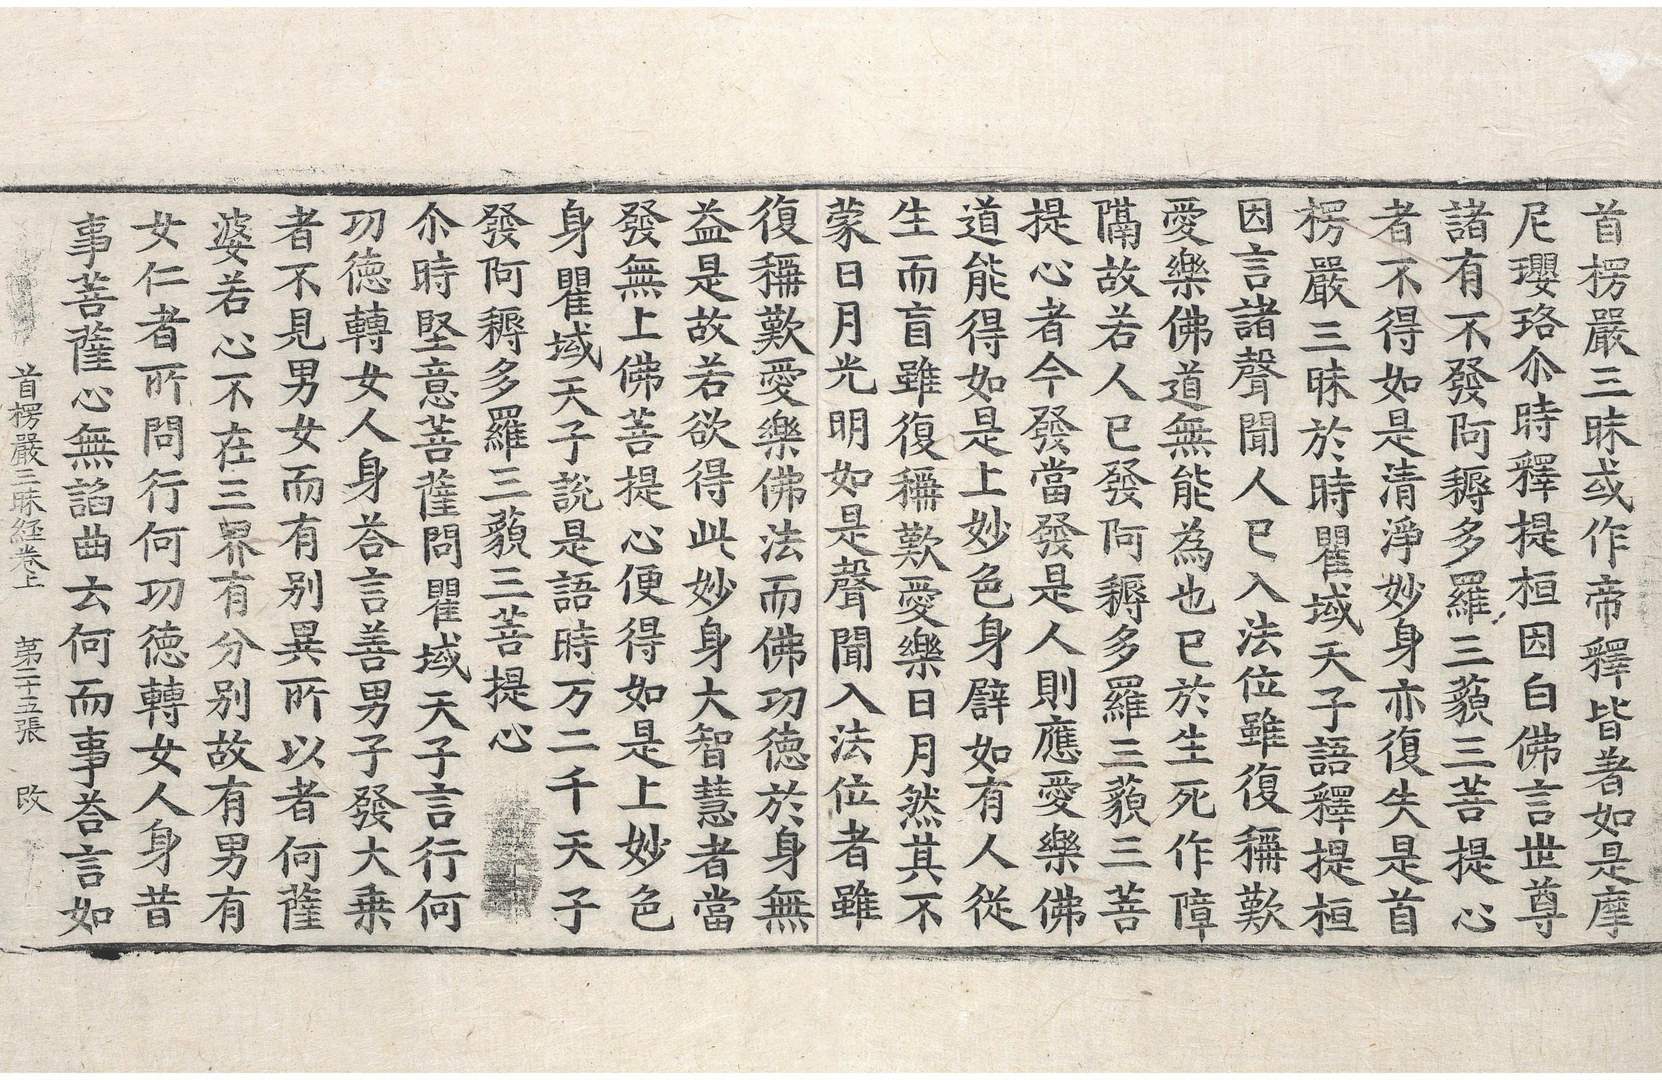 首楞嚴三昧或作帝釋皆著如是摩
尼瓔珞尒時釋提桓因白佛言世尊
諸有不發阿耨多羅三藐三菩提心
者不得如是清淨妙身亦復失是首
楞嚴三昧於時瞿域天子語釋提桓
因言諸聲聞人已入法位雖復稱歎
愛樂佛道無能為也已於生死作障
隔故若人已發阿耨多羅三藐三菩
提心者今發當發是人則應愛樂佛
道能得如是上妙色身譬如有人從
生而盲雖復稱歎愛樂日月然其不
蒙日月光明如是聲聞入法位者雖
復稱歎愛樂佛法而佛功德於身無
益是故若欲得此妙身大智慧者當
發無上佛菩提心便得如是上妙色
身瞿域天子說是語時万二千天子
發阿耨多羅三藐三菩提心
尒時堅意菩薩問瞿域天子言行何
功德轉女人身荅言善男子發大乗
者不見男女而有別異所以者何薩
婆若心不在三界有分別故有男有
女仁者所問行何功德轉女人身昔
事菩薩心無諂曲云何而事荅言如
首楞嚴三昧経卷上 第二十五張 改